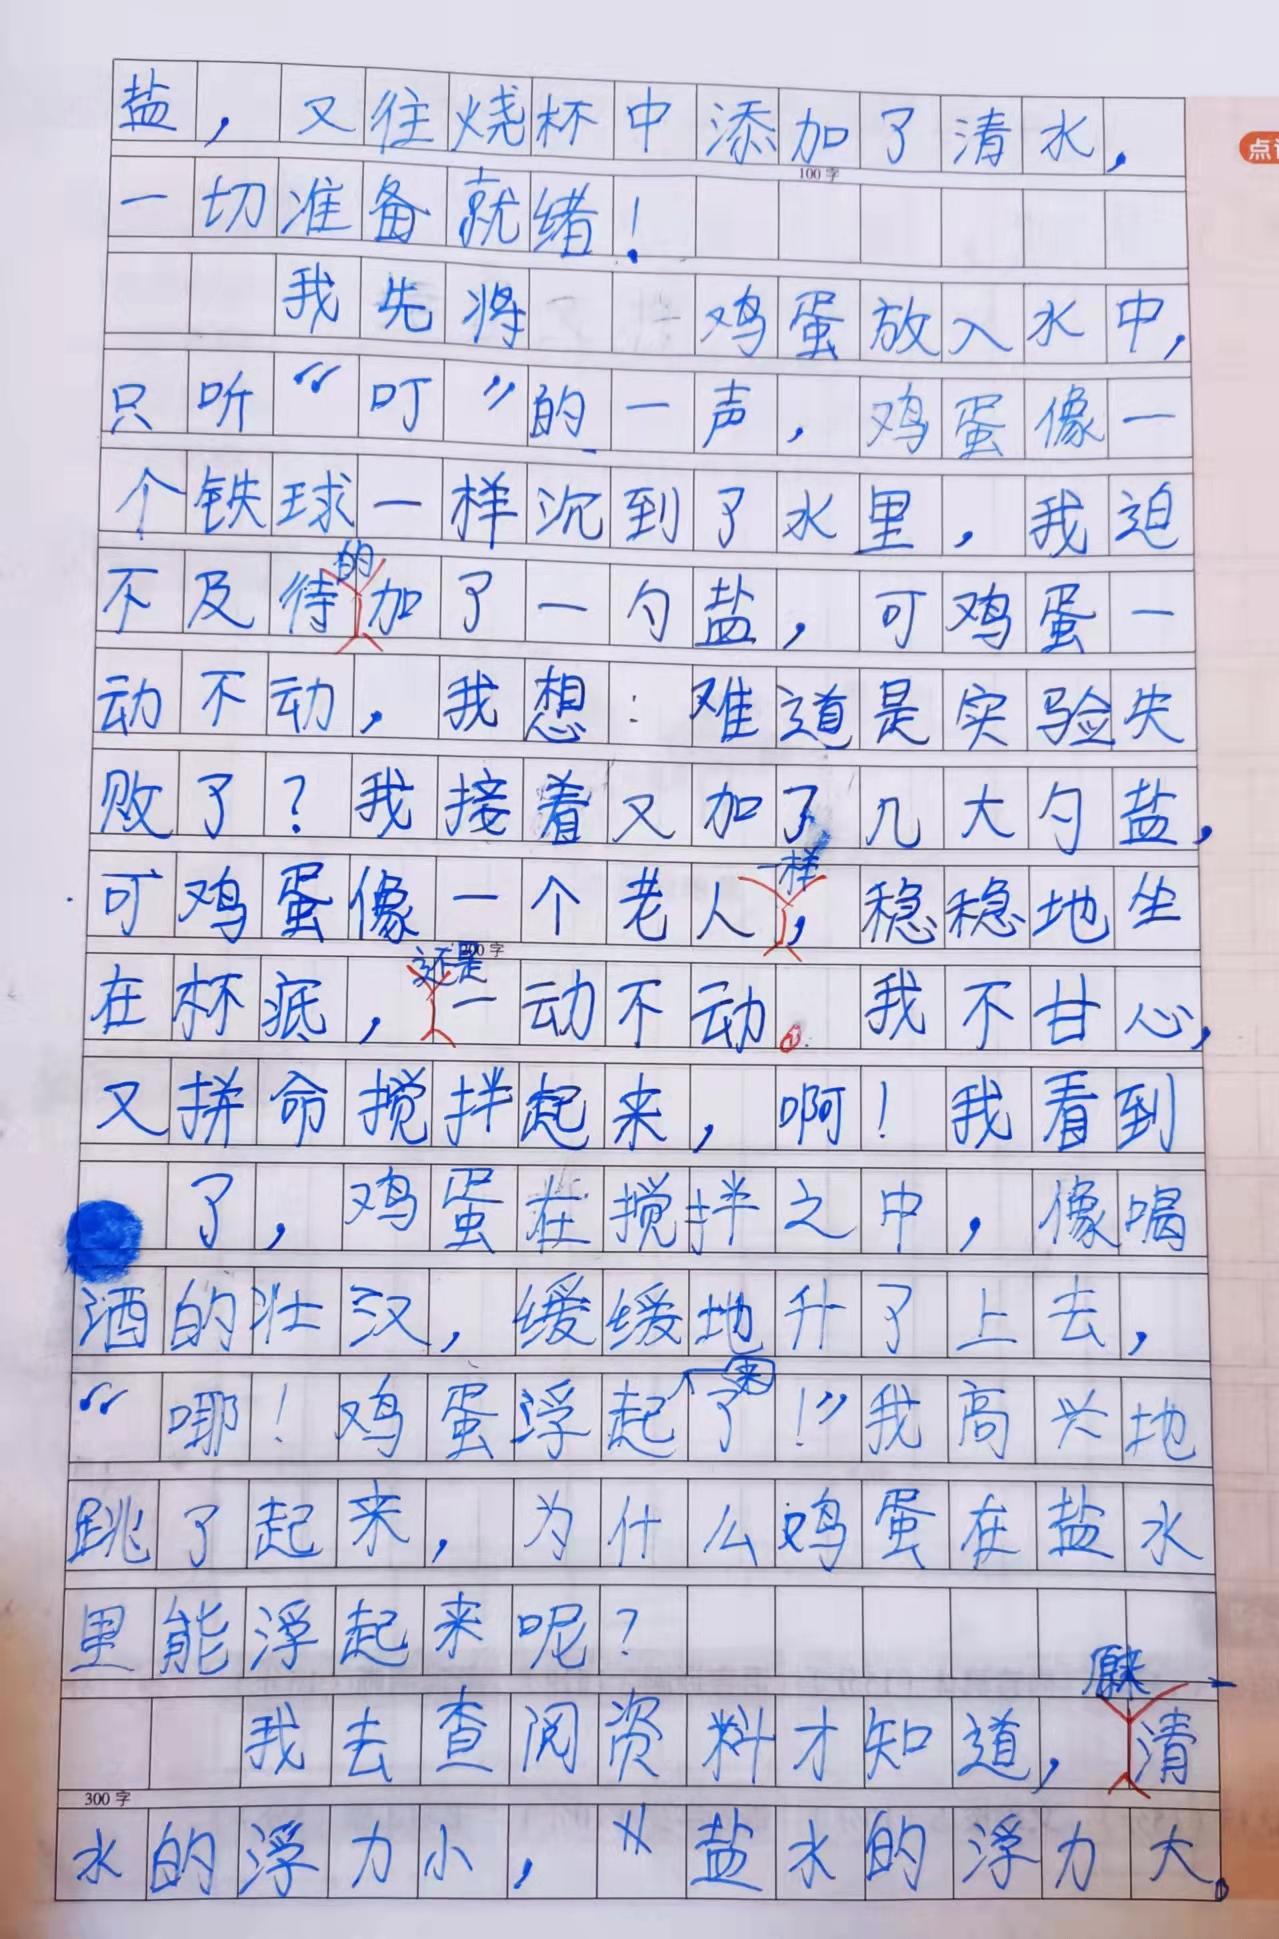 盐，又往烧杯中添加了清水，
100字
一切准备就绪！
我先将鸡蛋放入水中，
只听“叮”的一声，鸡蛋像一
个铁球一样沉到了水里，我迫
不及待的加了一勺盐，可鸡蛋一
动不动，我想：难道是实验失
败了？我接着又加了几大勺盐，
可鸡蛋像一个老人一样，稳稳地坐
200字
在杯底，还是一动不动。我不甘心，
又拼命搅拌起来，啊！我看到
了，鸡蛋在搅拌之中，像喝
酒的壮汉，缓缓地升了上去，
“哪！鸡蛋浮起来了！”我高兴地
跳了起来，为什么鸡蛋在盐水
里能浮起来呢？
我去查阅资料才知道，原来清
300字
水的浮力小，盐水的浮力大。